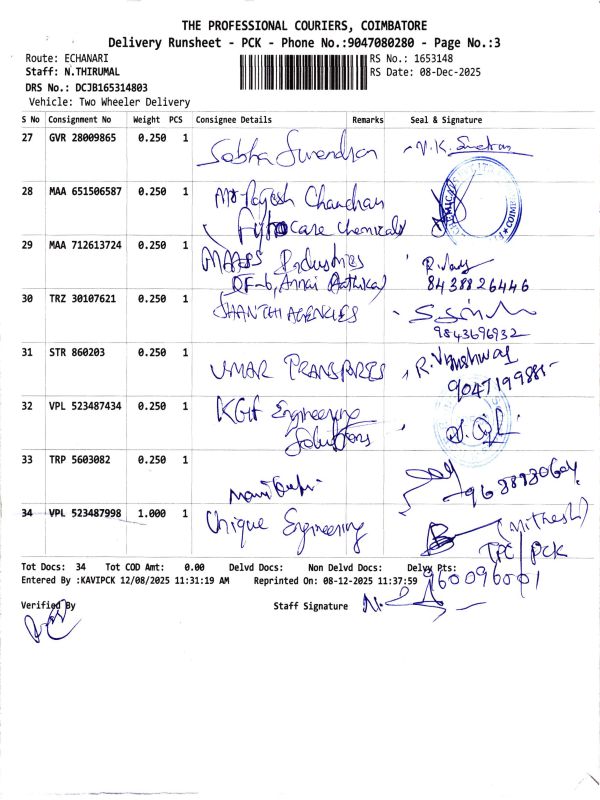 THE PROFESSIONAL COURIERS, COIMBATORE
Delivery Runsheet - PCK - Phone No.:9047080280 - Page No.:3
Route: ECHANARI
RS No.: 1653148
Staff: N.THIRUMAL
RS Date: 08-Dec-2025
DRS No.: DCJB165314803
Vehicle: Two Wheeler Delivery
S No Consignment No Weight PCS Consignee Details Remarks Seal & Signature
27 GVR 28009865 0.250 1 Sobha Surendran V.K.
28 MAA 651506587 0.250 1 Mr Yogesh Chandran
care Chemicals
29 MAA 712613724 0.250 1 MAASS Industries
DF-6, Annai Aathika 8438826446
30 TRZ 30107621 0.250 1 SHANTHI AGENCIES
9843696932
31 STR 860203 0.250 1 UMAR TRANSPORTS R.
32 VPL 523487434 0.250 1 KGH Engineering
Solutions
33 TRP 5603082 0.250 1
34 VPL 523487998 1.000 1 Unique Engineering (Mithesh)
TPC PCK
Tot Docs: 34 Tot COD Amt: 0.00 Delvd Docs: Non Delvd Docs: Delvy Pts:
960096001
Entered By :KAVIPCK 12/08/2025 11:31:19 AM Reprinted On: 08-12-2025 11:37:59
Verified By Staff Signature